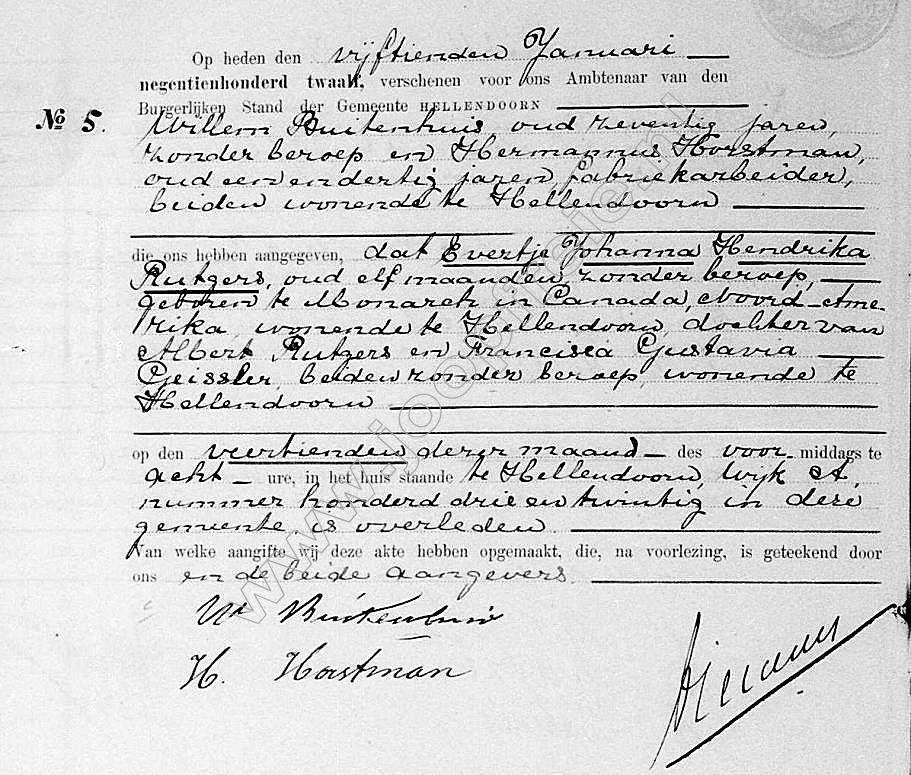 Op heden den vijftienden Januari
negentienhonderd twaalf, verschenen voor ons Ambtenaar van den
Burgerlijken Stand der Gemeente HELLENDOORN
No 5. Willem Buitenhuis oud zeventig jaren,
zonder beroep en Hermannus Horstman,
oud eenendertig jaren, fabriekarbeider,
beiden wonende te Hellendoorn
die ons hebben aangegeven, dat Evertje Johanna Hendrika
Rutgers, oud elf maanden, zonder beroep,
geboren te Monarch in Canada, Noord-Ame-
rika, wonende te Hellendoorn, dochter van
Albert Rutgers en Francisca Gustavia
Geissler, beiden zonder beroep, wonende te
Hellendoorn
op den veertienden dezer maand des voor middags te
acht ure, in het huis staande te Hellendoorn, wijk A,
nummer honderd drie en twintig in deze
gemeente, is overleden
Van welke aangifte wij deze akte hebben opgemaakt, die, na voorlezing, is geteekend door
ons en de beide aangevers
Wm Buitenhuis
H. Horstman